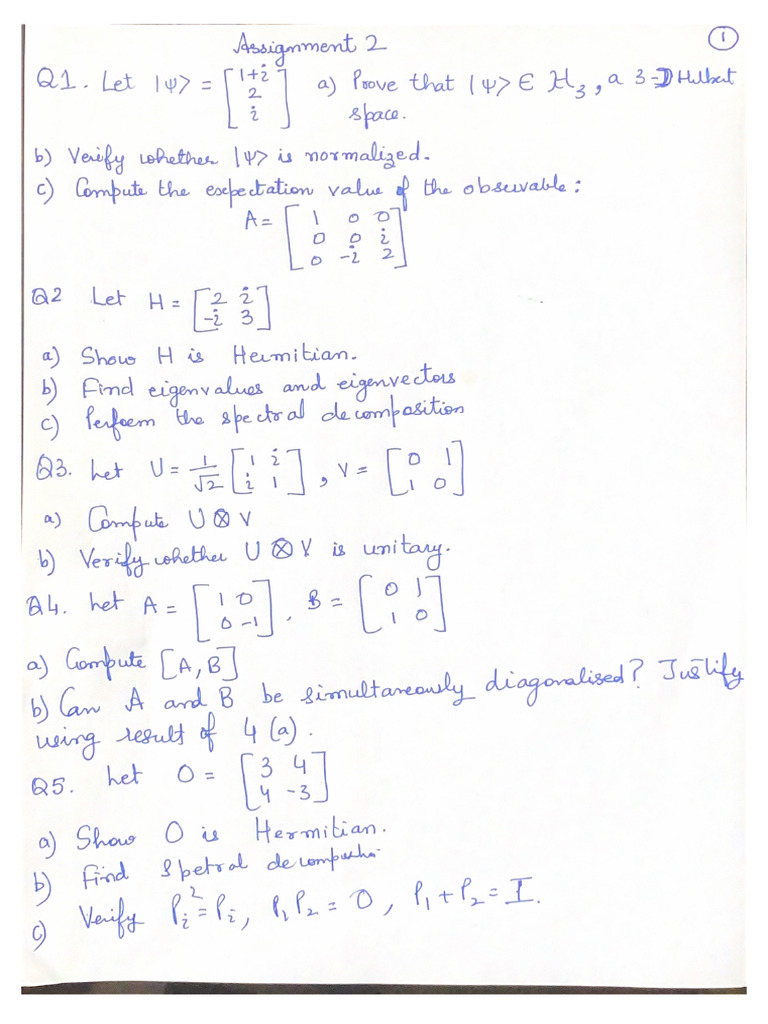 Assignment 2
1
Q1. Let |ψ> = [1+i 2 i] a) Prove that |ψ> ∈ ℋ₃, a 3-D Hilbert
space.
b) Verify whether |ψ> is normalized.
c) Compute the expectation value of the observable:
A = [1 0 0
0 0 i
0 -i 2]
Q2 Let H = [2 i
-i 3]
a) Show H is Hermitian.
b) Find eigenvalues and eigenvectors
c) Perform the spectral decomposition
Q3. Let U = 1/√2 [1 i; i 1], V = [0 1; 1 0]
a) Compute U ⊗ V
b) Verify whether U ⊗ V is unitary.
Q4. Let A = [1 0; 0 -1], B = [0 1; 1 0]
a) Compute [A, B]
b) Can A and B be simultaneously diagonalised? Justify
using result of 4 (a).
Q5. Let O = [3 4; 4 -3]
a) Show O is Hermitian.
b) Find Spetral decomposition
c) Verify Pi² = Pi, P₁P₂ = 0, P₁ + P₂ = I.